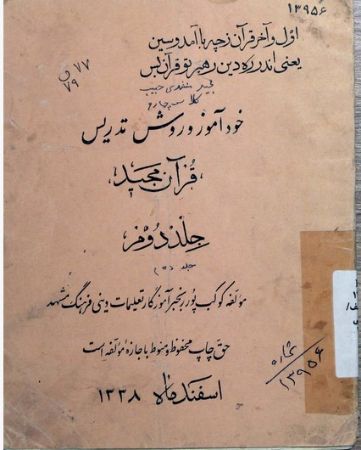 ۱۳۹۵۶
اوّل و آخر قرآن زچه با آمد و سین
یعنی اندر ره دین رهبر تو قرآن بس
۷۷ ق
۷۹
خودآموز و روش تدریس
قرآن مجید
جلد دوّم
جلد (۲)
مؤلفه کوکب پور رنجبر آموزگار تعلیمات دینی فرهنگ مشهد
حق چاپ محفوظ و منوط با جازه مؤلفه است
اسفند ماه ۱۳۳۸
شماره
۱۳۹۵۶